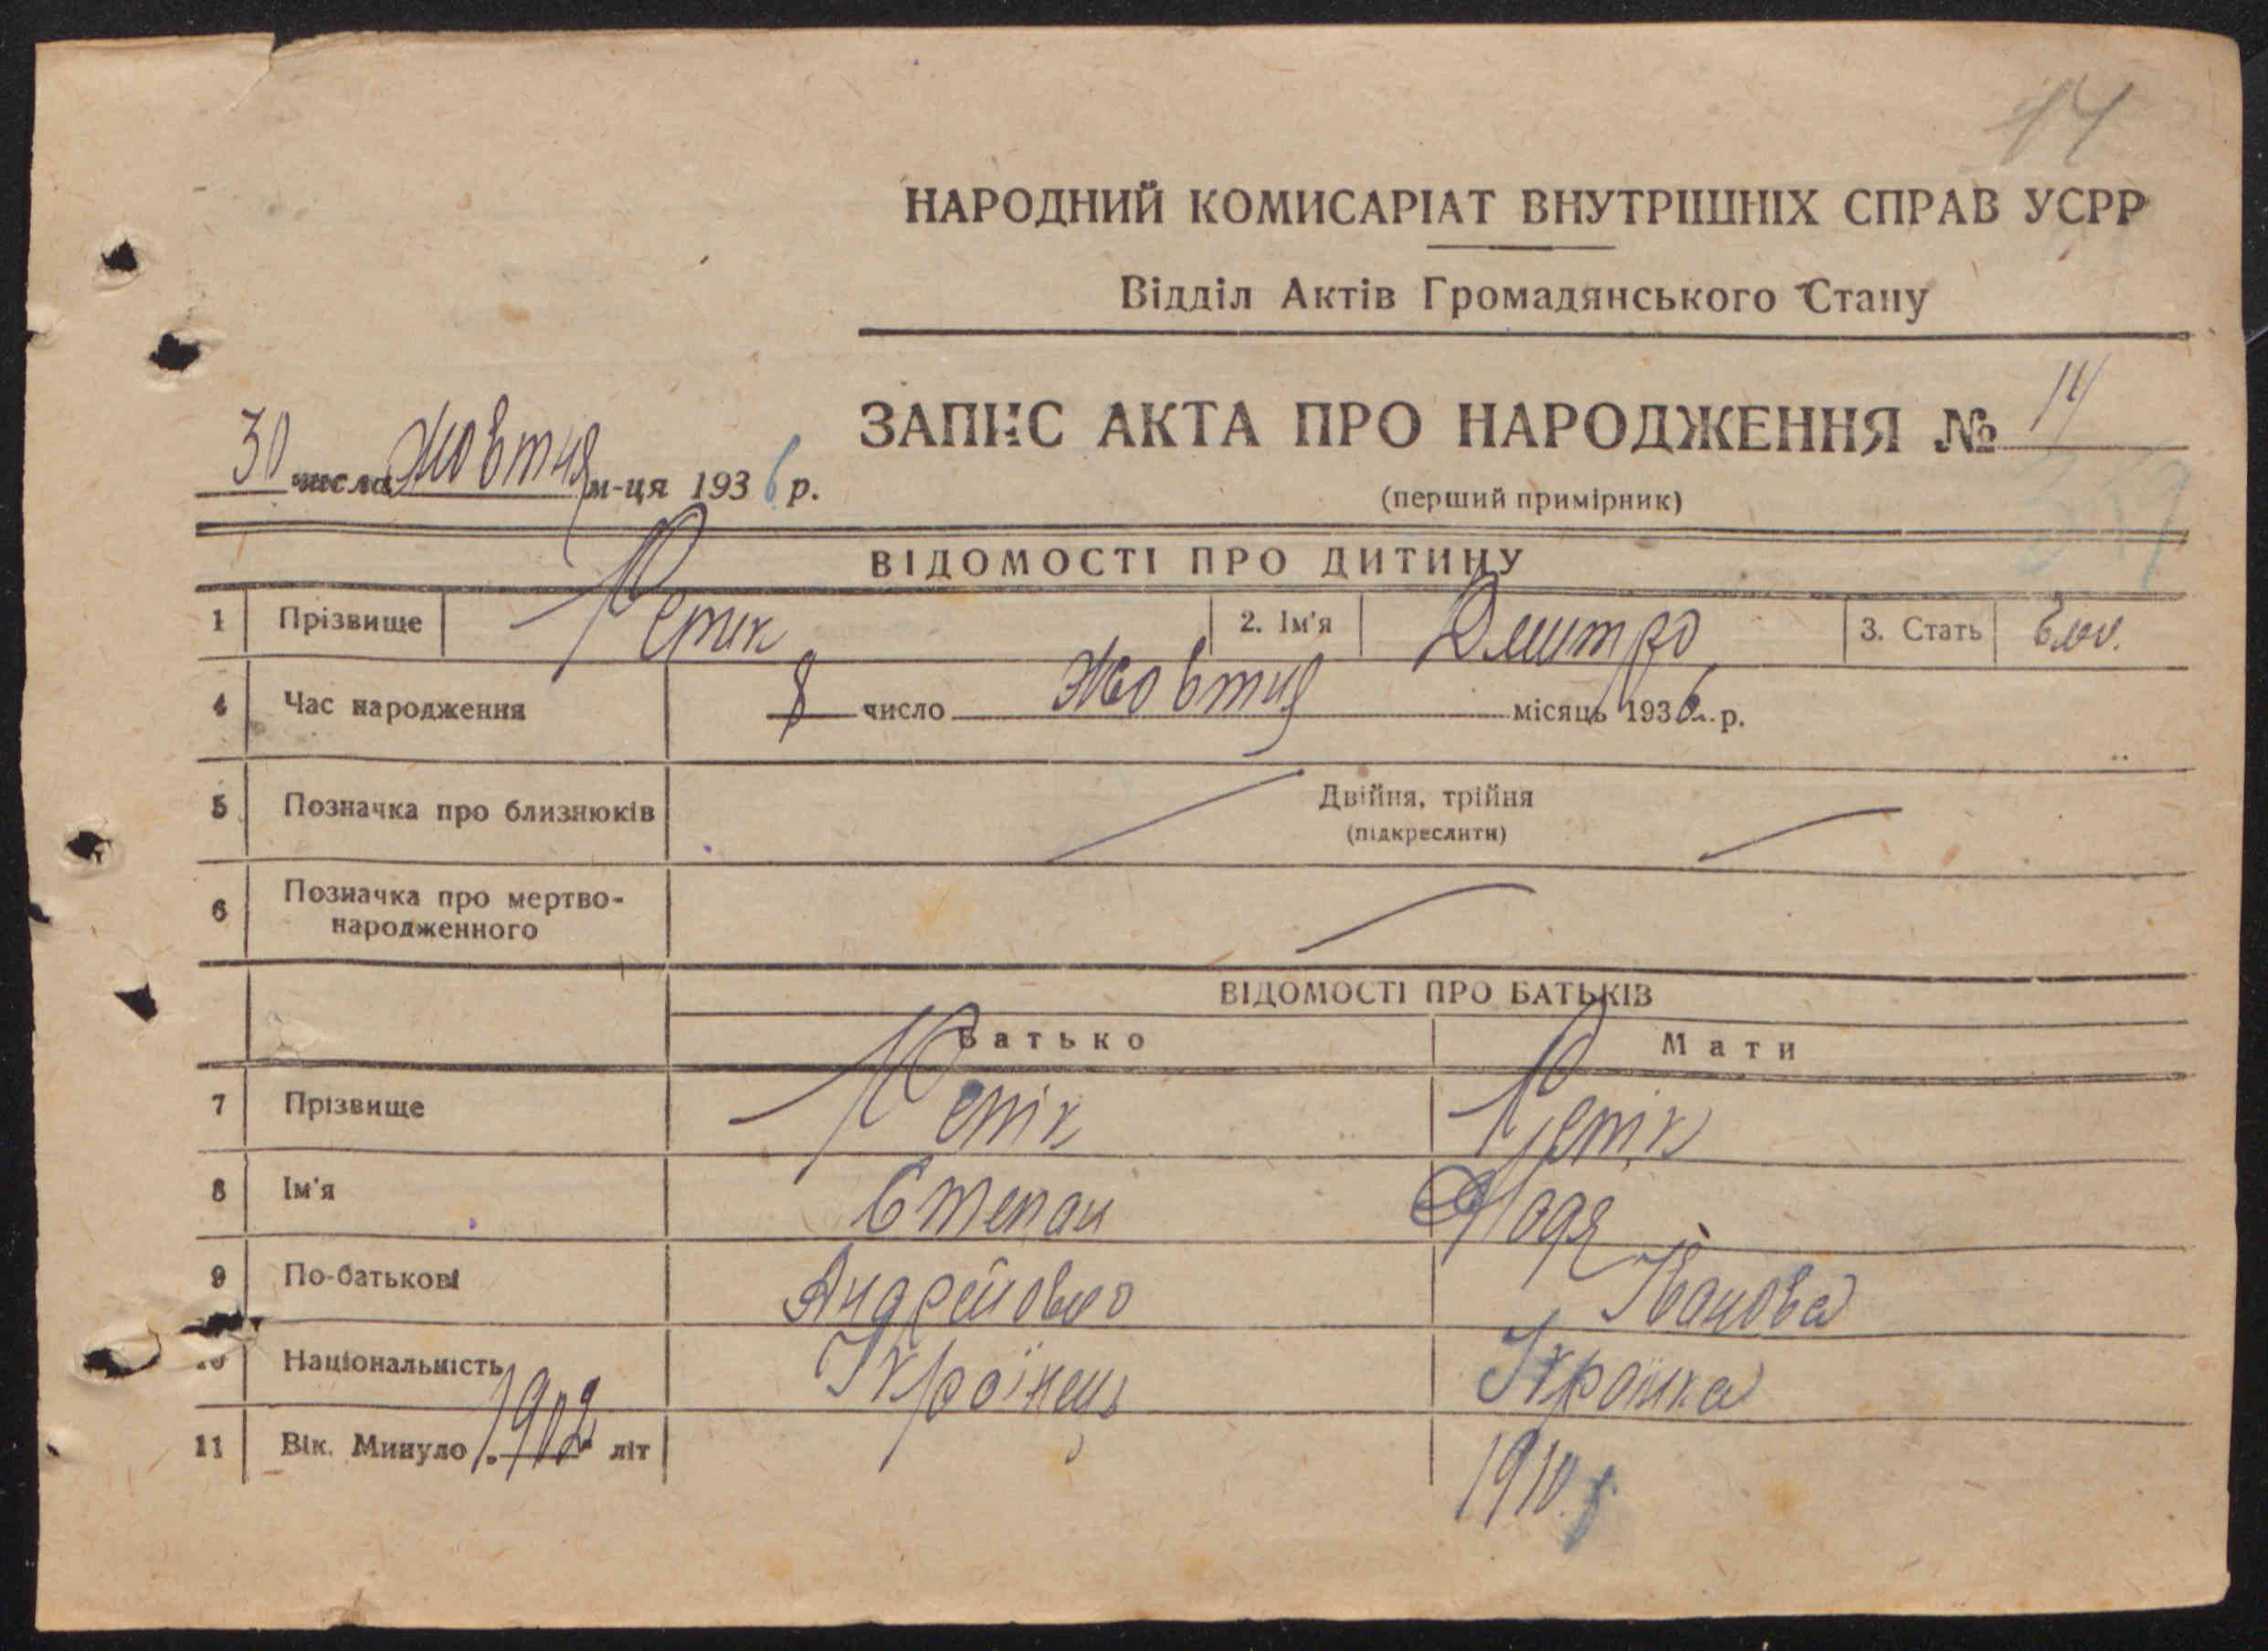 14
НАРОДНИЙ КОМИСАРІАТ ВНУТРІШНІХ СПРАВ УСРР
Відділ Актів Громадянського Стану
ЗАПИС АКТА ПРО НАРОДЖЕННЯ № 14
30 числа Жовтня м-ця 1936 р.
(перший примірник)
ВІДОМОСТІ ПРО ДИТИНУ
1 Прізвище 2. Ім'я Дмитро 3. Стать
4 Час народження 8 число Жовтня місяць 1936 р.
5 Позначка про близнюків Двійня, трійня
(підкреслити)
6 Позначка про мертво-
народженного
ВІДОМОСТІ ПРО БАТЬКІВ
Батько Мати
7 Прізвище
8 Ім'я Степан
9 По-батькові Іванова
10 Національність Українець Українка
11 Вік. Минуло 1902 літ 1910 р